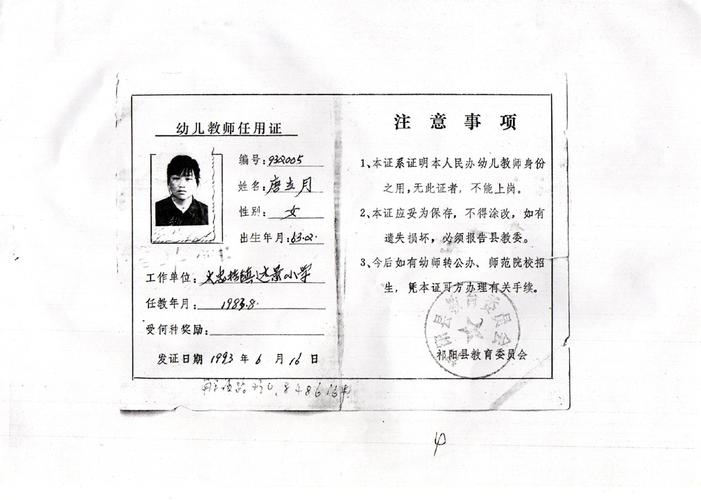 幼儿教师任用证
编号:932005
姓名:唐立月
性别: 女
出生年月:63.2.
工作单位:文忠桥镇达景小学
任教年月: 1983.8.
受何种奖励:
发证日期 1993 年 6 月 16 日
注意事项
1、本证系证明本人民办幼儿教师身份
之用,无此证者,不能上岗。
2、本证应妥为保存,不得涂改,如有
遗失损坏,必须报告县教委。
3、今后如有幼师转公办、师范院校招
生,凭本证可方办理有关手续。
祁阳县教育委员会
祁阳县教育委员会